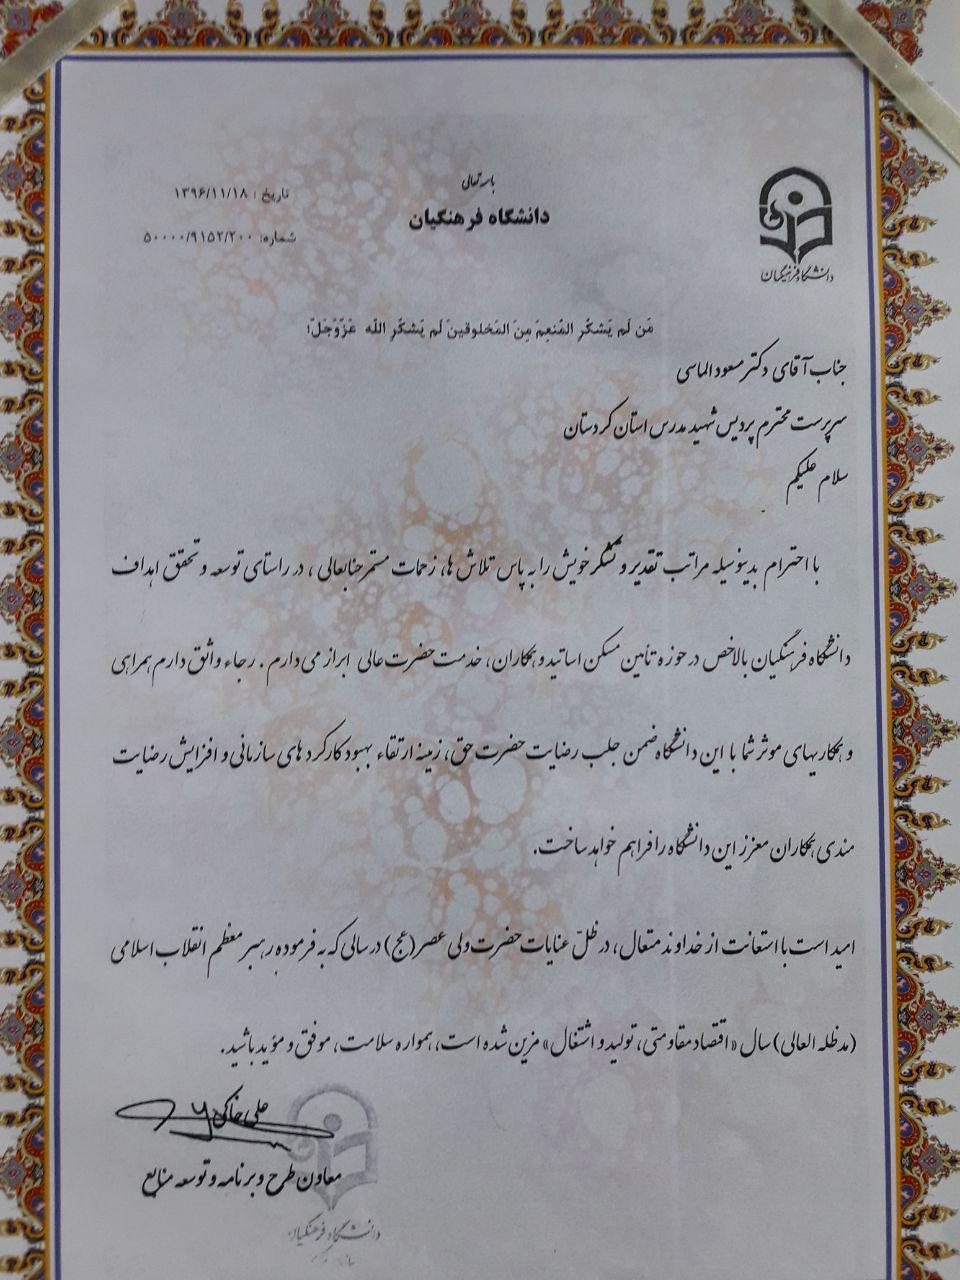 باسمه تعالی
دانشگاه فرهنگیان
تاریخ : ۱۳۹۶/۱۱/۱۸
شماره: ۵۰۰۰۰/۹۱۵۲/۲۰۰
دانشگاه فرهنگیان
مَن لَم یَشکُرِ المُنعِمَ مِنَ المَخلوقینَ لَم یَشکُرِ اللّه عَزَّوَجَلَّ؛
جناب آقای دکتر مسعود الماسی
سرپرست محترم پردیس شهید مدرس استان کردستان
سلام علیکم
با احترام بدینوسیله مراتب تقدیر و تشکر خویش را به پاس تلاش ها، زحمات مستمر جنابعالی ، در راستای توسعه و تحقق اهداف
دانشگاه فرهنگیان بالاخص در حوزه تأمین مسکن اساتید و همکاران، خدمت حضرت عالی ابراز می دارم . رجاء واثق دارم همراهی
و همکاریهای موثر شما با این دانشگاه ضمن جلب رضایت حضرت حق، زمینه ارتقاء بهبود کارکرد های سازمانی و افزایش رضایت
مندی همکاران معزز این دانشگاه را فراهم خواهد ساخت.
امید است با استعانت از خداوند متعال، در ظلّ عنایات حضرت ولی عصر(عج) در سالی که به فرموده رهبر معظم انقلاب اسلامی
(مدظله العالی) سال «اقتصاد مقاومتی، تولید و اشتغال» مزین شده است، همواره سلامت، موفق و مؤید باشید.
علی خاکی
معاون طرح و برنامه و توسعه منابع
دانشگاه فرهنگیان